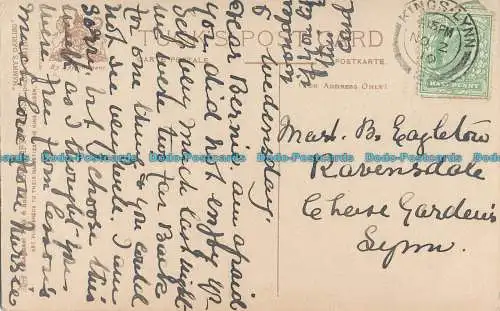 TUCK'S POST CARD
CARTE POSTALE
POSTKARTE.
(FOR ADDRESS ONLY)
KINGS LYNN
NO 2
HALFPENNY
Mast. B. Eagleton
Ravensdale
Chase Gardens
Lynn.
Wednesday.
Dear Bernie, am afraid
you did not enjoy yr-
self very much last night-
we were too far Back
for one thing & you could
not see very well. I am
sorry I did not choose this
week as I thought- you
were free from lessons
Much love from Nursie
Dodo-Postcards Dodo-Postcards Dodo-Postcards Dodo-Postcards